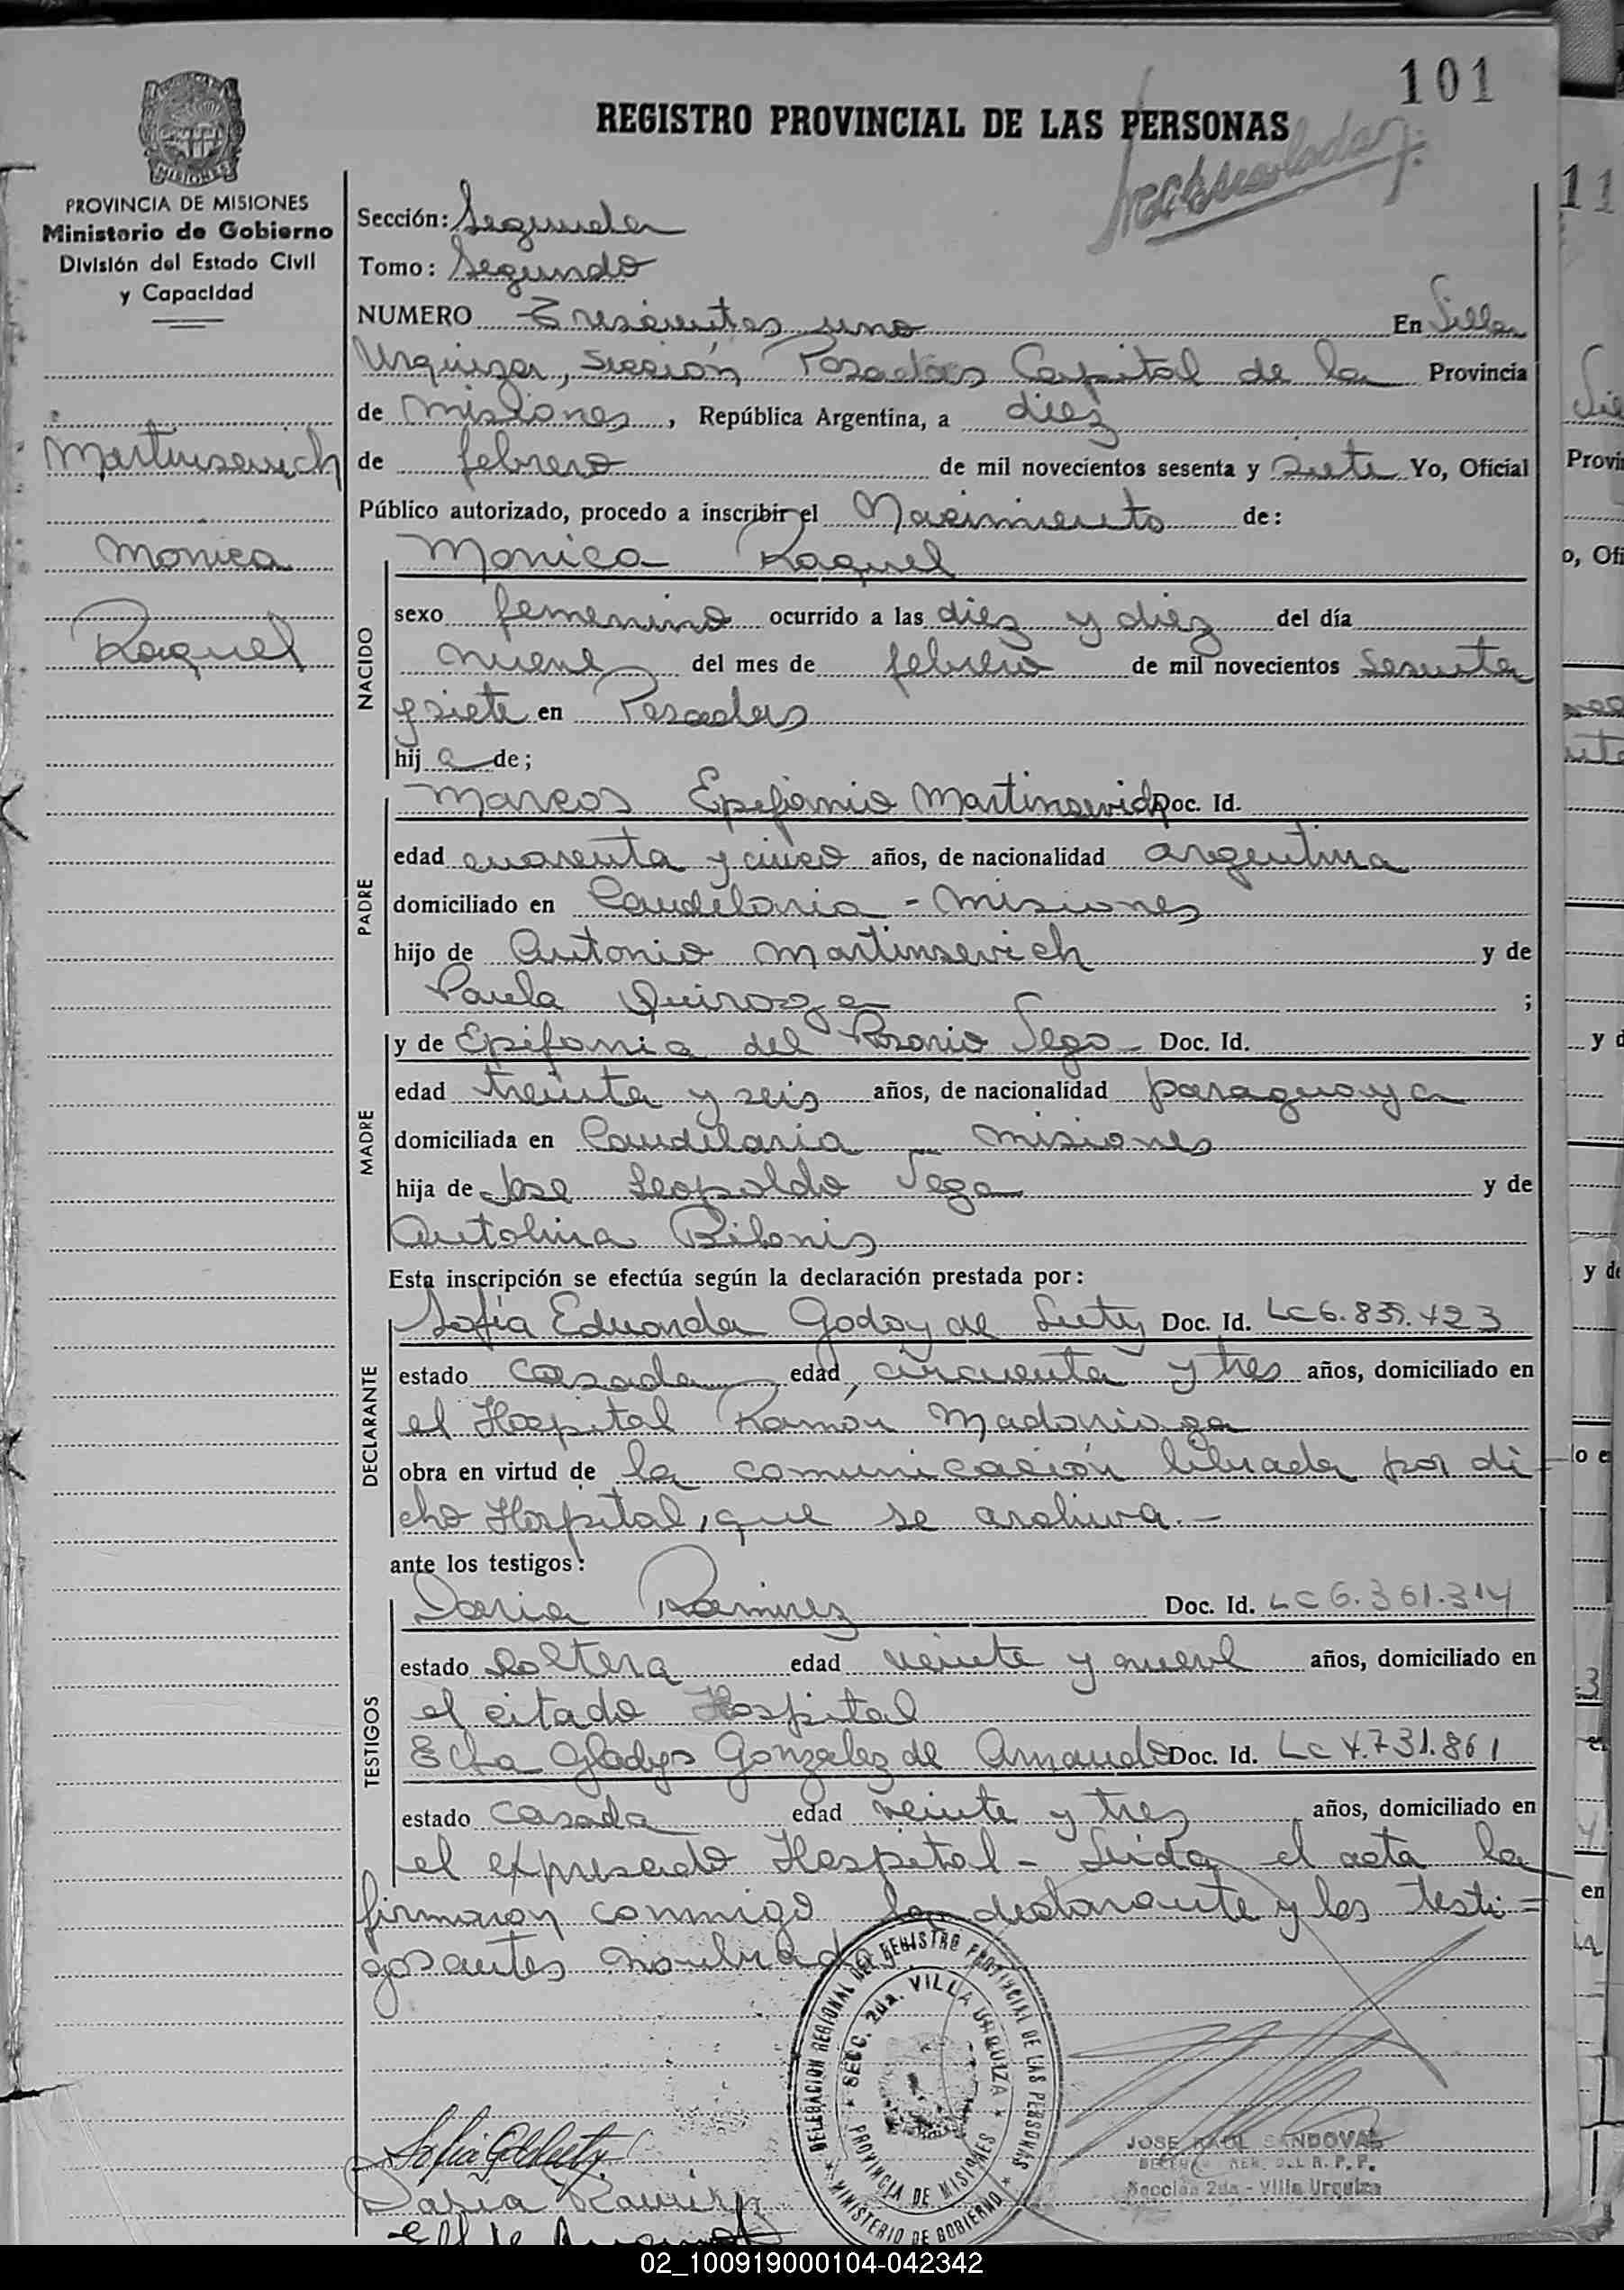 101
REGISTRO PROVINCIAL DE LAS PERSONAS
MISIONES
PROVINCIA DE MISIONES
Ministerio de Gobierno
División del Estado Civil
y Capacidad
Martinsevich
Monica
Raquel
Sección: Segunda
Tomo: Segundo
NUMERO Trescientos uno En Villa
Urquiza, Sección Posadas Capital de la Provincia
de Misiones, República Argentina, a diez
de febrero de mil novecientos sesenta y siete Yo, Oficial
Público autorizado, procedo a inscribir el Nacimiento de:
NACIDO
Monica Raquel
sexo femenino ocurrido a las diez y diez del día
nueve del mes de febrero de mil novecientos sesenta
y siete en Posadas
hij a de;
PADRE
Marcos Epifanio Martinsevich Doc. Id.
edad cuarenta y cinco años, de nacionalidad argentina
domiciliado en Candelaria - Misiones
hijo de Antonio Martinsevich y de
Paula Quiroga ;
MADRE
y de Epifania del Rosario Vega - Doc. Id.
edad treinta y seis años, de nacionalidad paraguaya
domiciliada en Candelaria Misiones
hija de Jose Leopoldo Vega y de
Antolina Bilonis
Esta inscripción se efectúa según la declaración prestada por:
DECLARANTE
Sofía Eduarda Godoy de Doc. Id. LC 6.839.423
estado casada edad, cincuenta y tres años, domiciliado en
el Hospital Ramón Madariaga
obra en virtud de la comunicación librada por di-
cho Hospital, que se archiva.-
ante los testigos:
TESTIGOS
Daria Ramirez Doc. Id. LC 6.361.314
estado soltera edad veinte y nueve años, domiciliado en
el citado Hospital
Elba Gladys Gonzalez de Doc. Id. LC 4.731.861
estado casada edad veinte y tres años, domiciliado en
el expresado Hospital - Leida el acta la
firmaron conmigo la declarante y los testi=
gos antes nombrados
DELEGACION REGIONAL DEL REGISTRO PROVINCIAL DE LAS PERSONAS
MINISTERIO DE GOBIERNO
SECC. 2da. VILLA URQUIZA
PROVINCIA DE MISIONES
JOSE RAUL SANDOVAL
Sección 2da - Villa Urquiza
Daria Ramirez
02_100919000104-042342